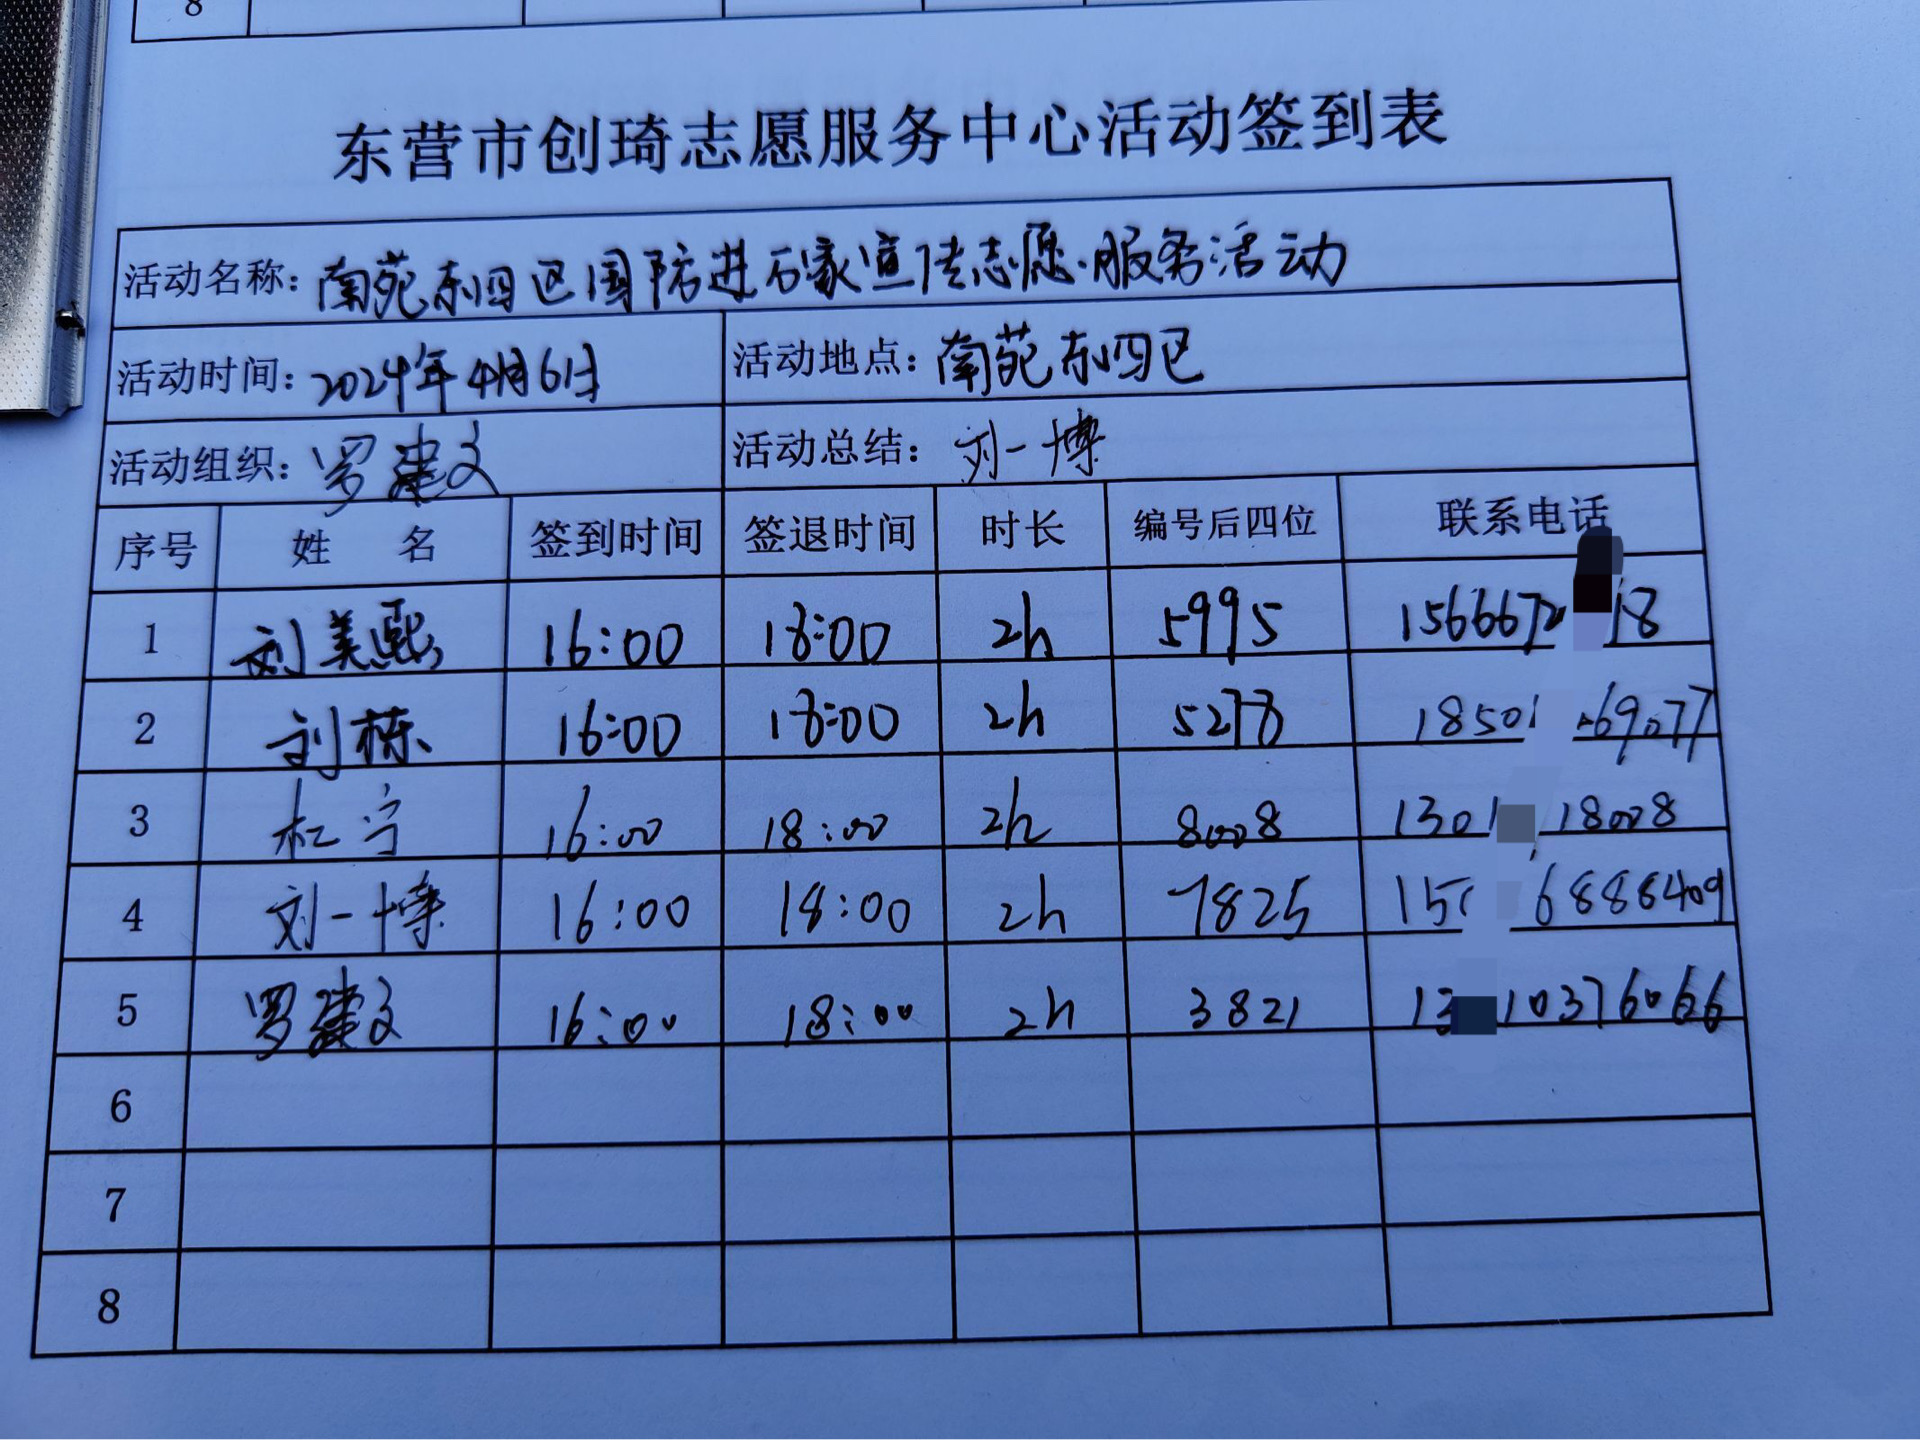 8
东营市创琦志愿服务中心活动签到表
活动名称: 南苑东四区国防进百家宣传志愿服务活动
活动时间: 2024年4月6日 活动地点: 南苑东四区
活动组织: 罗建文 活动总结: 刘一博
序号 姓 名 签到时间 签退时间 时长 编号后四位 联系电话
1 刘美熙 16:00 18:00 2h 5995 1566672 18
2 刘栋 16:00 18:00 2h 5278 1850 69077
3 杜宁 16:00 18:00 2h 8008 130 18008
4 刘一博 16:00 18:00 2h 7825 15 6888409
5 罗建文 16:00 18:00 2h 3821 13 10376066
6
7
8